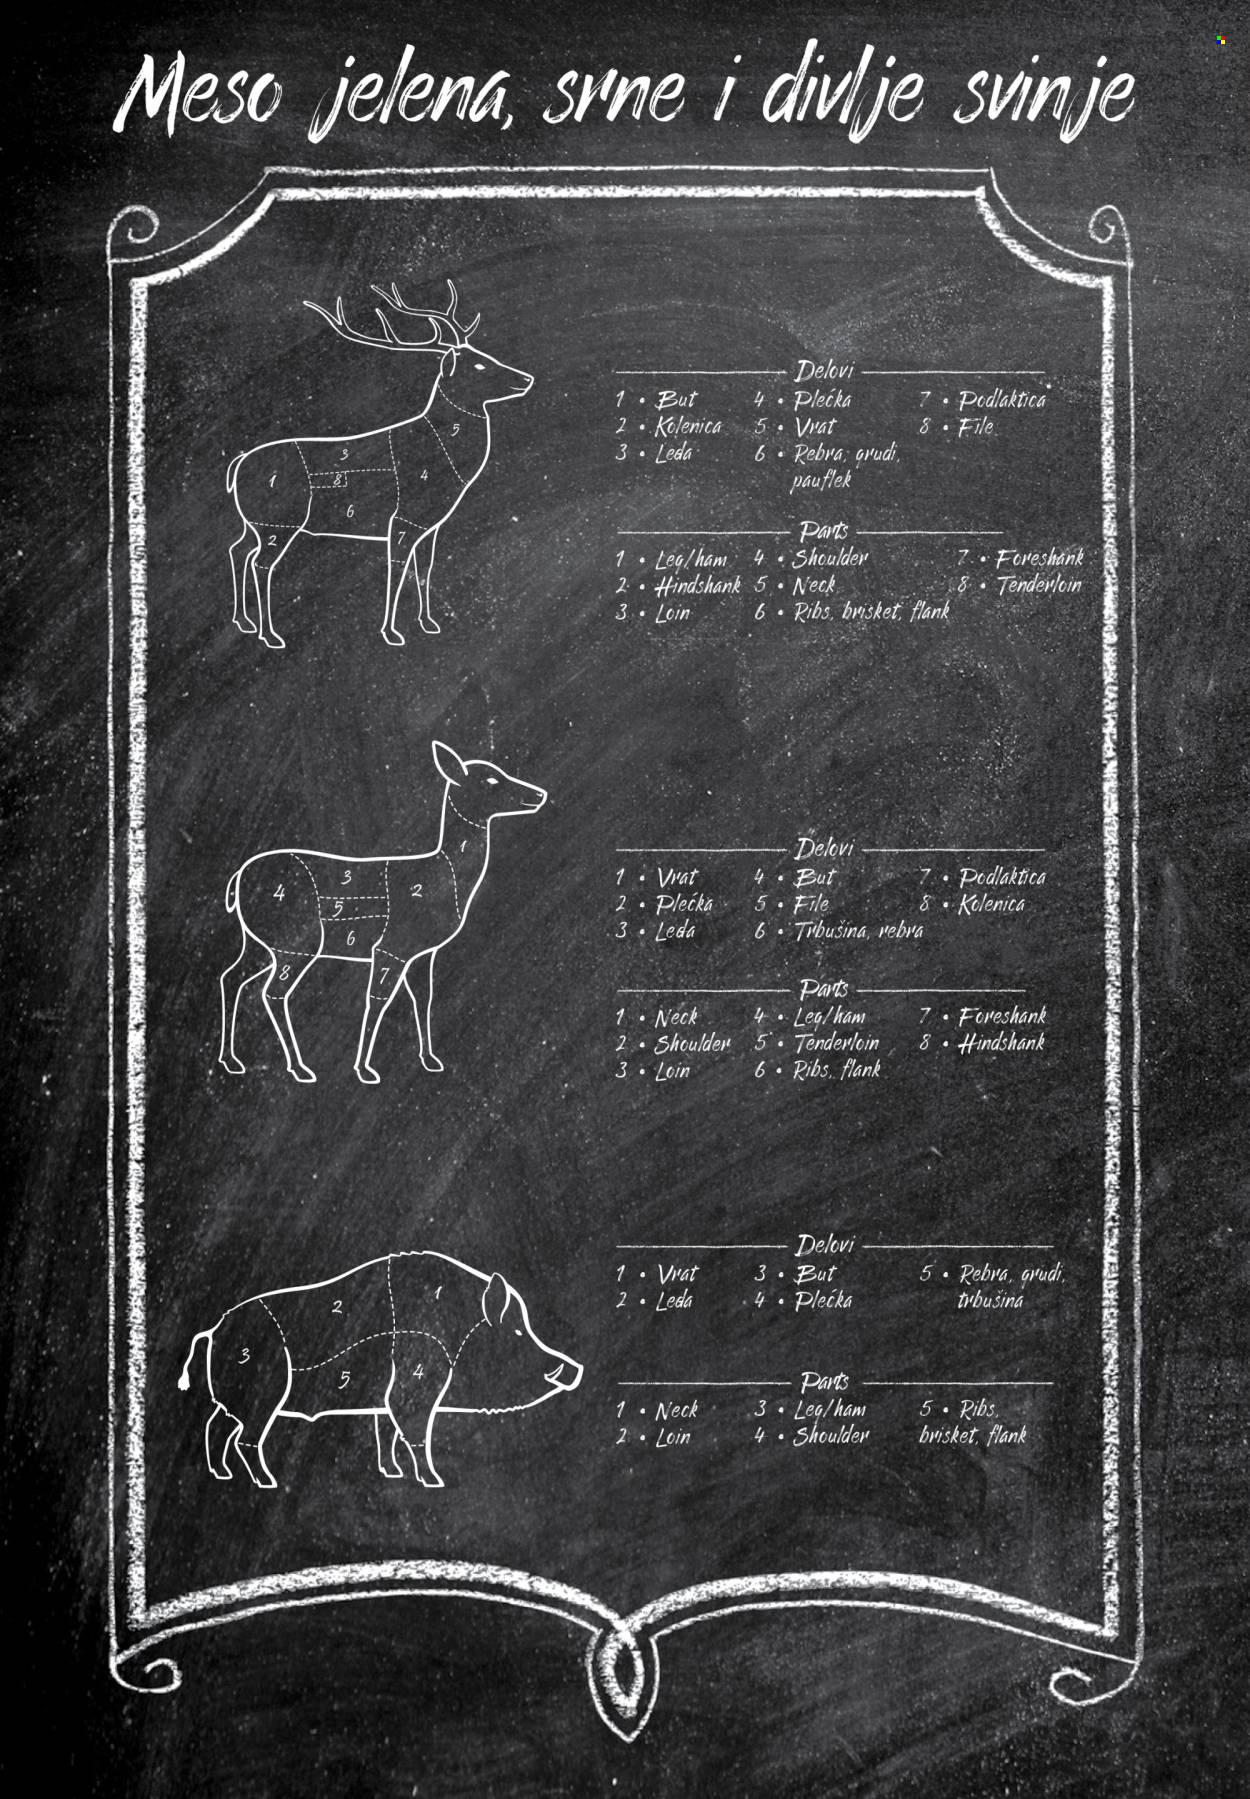 Meso jelena, srne i divlje svinje
5
3
4
1
8
6
2
7
Delovi
1 • But 4 • Plećka 7 • Podlaktica
2 • Kolenica 5 • Vrat 8 • File
3 • Leđa 6 • Rebra, grudi,
pauflek
Parts
1 • Leg/ham 4 • Shoulder 7 • Foreshank
2 • Hindshank 5 • Neck 8 • Tenderloin
3 • Loin 6 • Ribs, brisket, flank
1
3
4
2
5
6
8
7
Delovi
1 • Vrat 4 • But 7 • Podlaktica
2 • Plećka 5 • File 8 • Kolenica
3 • Leđa 6 • Trbušina, rebra
Parts
1 • Neck 4 • Leg/ham 7 • Foreshank
2 • Shoulder 5 • Tenderloin 8 • Hindshank
3 • Loin 6 • Ribs, flank
1
2
3
5
4
Delovi
1 • Vrat 3 • But 5 • Rebra, grudi,
2 • Leđa 4 • Plećka trbušina
Parts
1 • Neck 3 • Leg/ham 5 • Ribs,
2 • Loin 4 • Shoulder brisket, flank